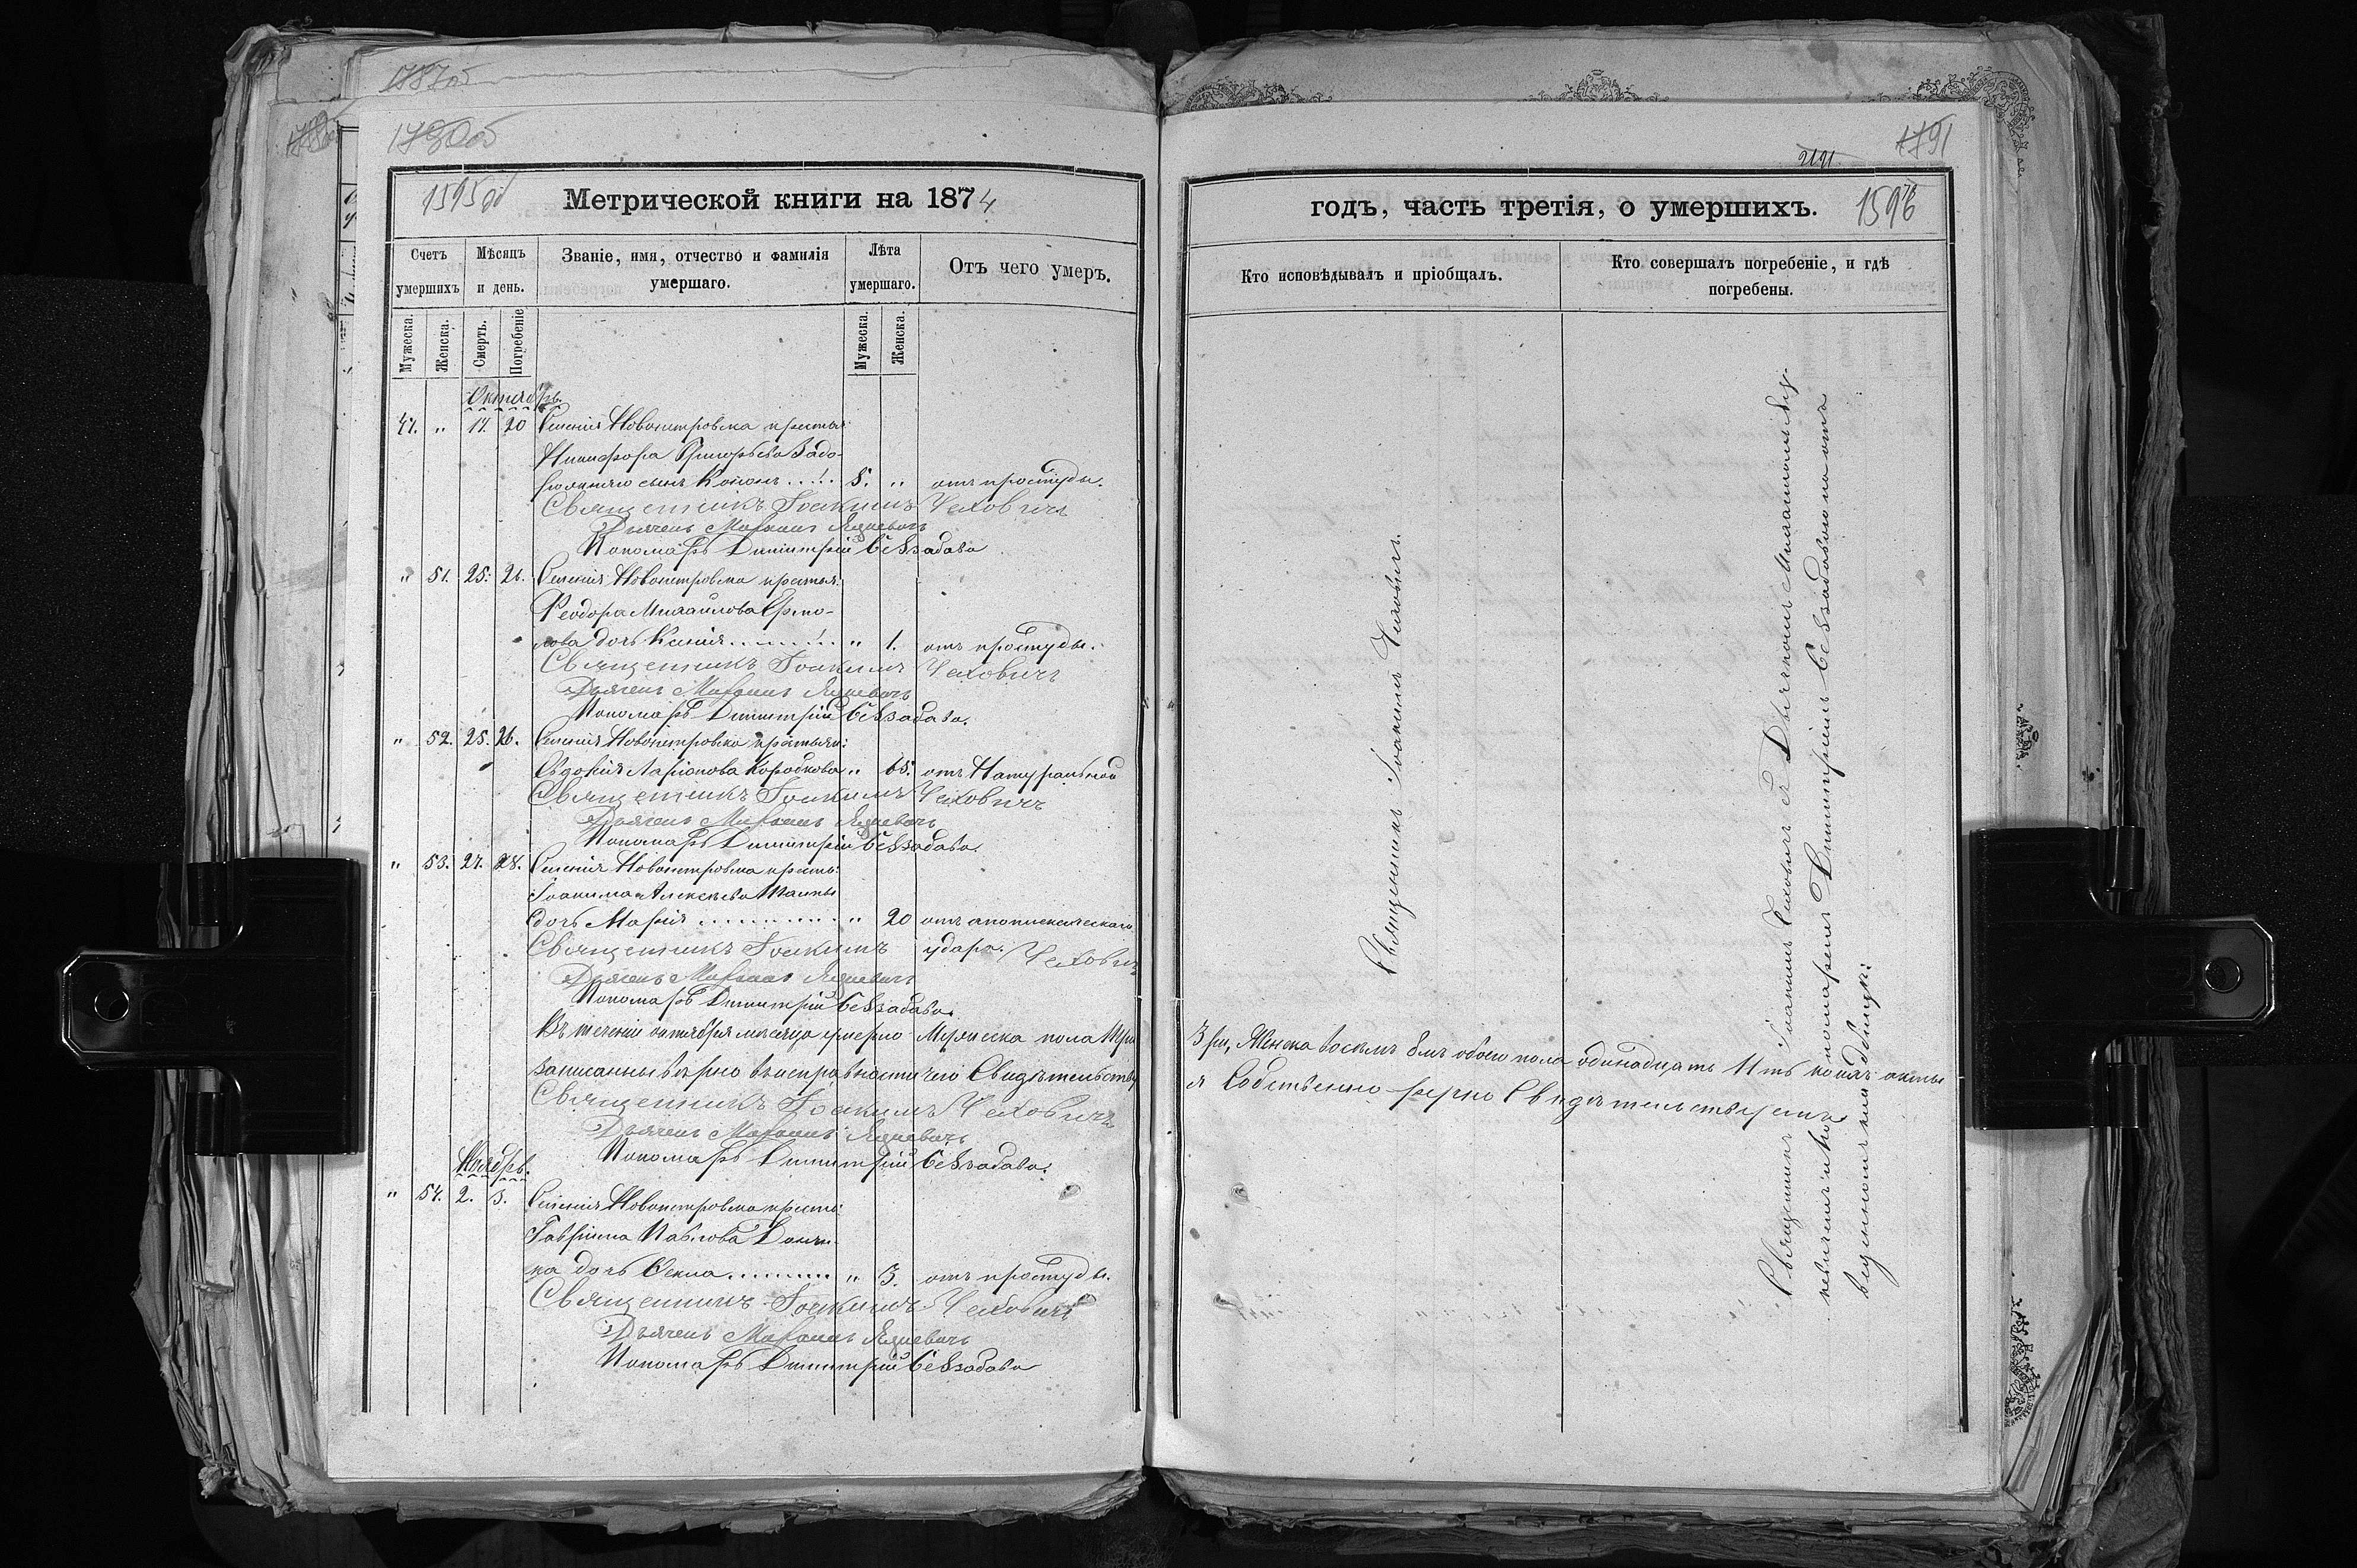 1787об
1790об
1595об
Метрической книги на 1874
Счетъ умершихъ
Мѣсяцъ и день.
Званіе, имя, отчество и фамилія умершаго.
Лѣта умершаго.
Отъ чего умеръ.
Мужеска.
Женска.
Смерть.
Погребеніе
Мужеска.
Женска.
Октябрь.
47. " 17. 20 Селенія Новопетровка крестья:
Никифора Григорьева Задо-
сына Конон..... 5. " отъ простуды.
Священникъ Іоакимъ Чехович
Дьячекъ
Пономарь Димитрій Беззабава
" 51. 25. 26. Селенія Новопетровка крестья:
Ѳеодора Михайлова Ермо-
лова дочь Ксенія......... " 1. отъ простуды.
Священникъ Іоакимъ Чеховичъ
Дьячекъ
Пономарь Димитрій Беззабава.
" 52. 25. 26. Селенія Новопетровка крестьян:
Евдокія Ларіонова Коробкова " 65. отъ Натуральной
Священникъ Іоакимъ Чеховичъ
Дьячекъ
Пономарь Димитрій Беззабава.
" 53. 27. 28. Селенія Новопетровка кресть:
Іоакима Алексѣева
дочь Марія............. " 20 отъ апоплексическаго
Священникъ Іоакимъ удара. Чехович
Дьячекъ
Пономарь Димитрій Беззабава.
Въ теченіи октября мѣсяца умерло Мужеска пола три
записанны вѣрно въ исправности чего Свидѣтельству
Священникъ Іоакимъ Чеховичъ
Дьячекъ
Пономарь Димитрій Беззабава.
Ноябрь.
" 54. 2. 3. Селенія Новопетровка кресть:
Гавріила Павлова
ка дочь Фекла.......... " 3. отъ простуды.
Священникъ Іоакимъ Чеховичъ
Дьячекъ
Пономарь Димитрій Беззабава
1791
2191
годъ, часть третія, о умершихъ.
1596
Кто исповѣдывалъ и пріобщалъ.
Кто совершалъ погребеніе, и гдѣ погребены.
Священникъ Іоакимъ Чеховичъ.
Священникъ Іоакимъ Чеховичъ съ Дьячкомъ
и пономаремъ Димитріемъ Беззабавою на отъ
веденномъ кладбищѣ:
3 ри, Женска восемъ 8мъ обоего пола одинадцать 11ть
я Собственно ручно Свидѣтельствуемъ.